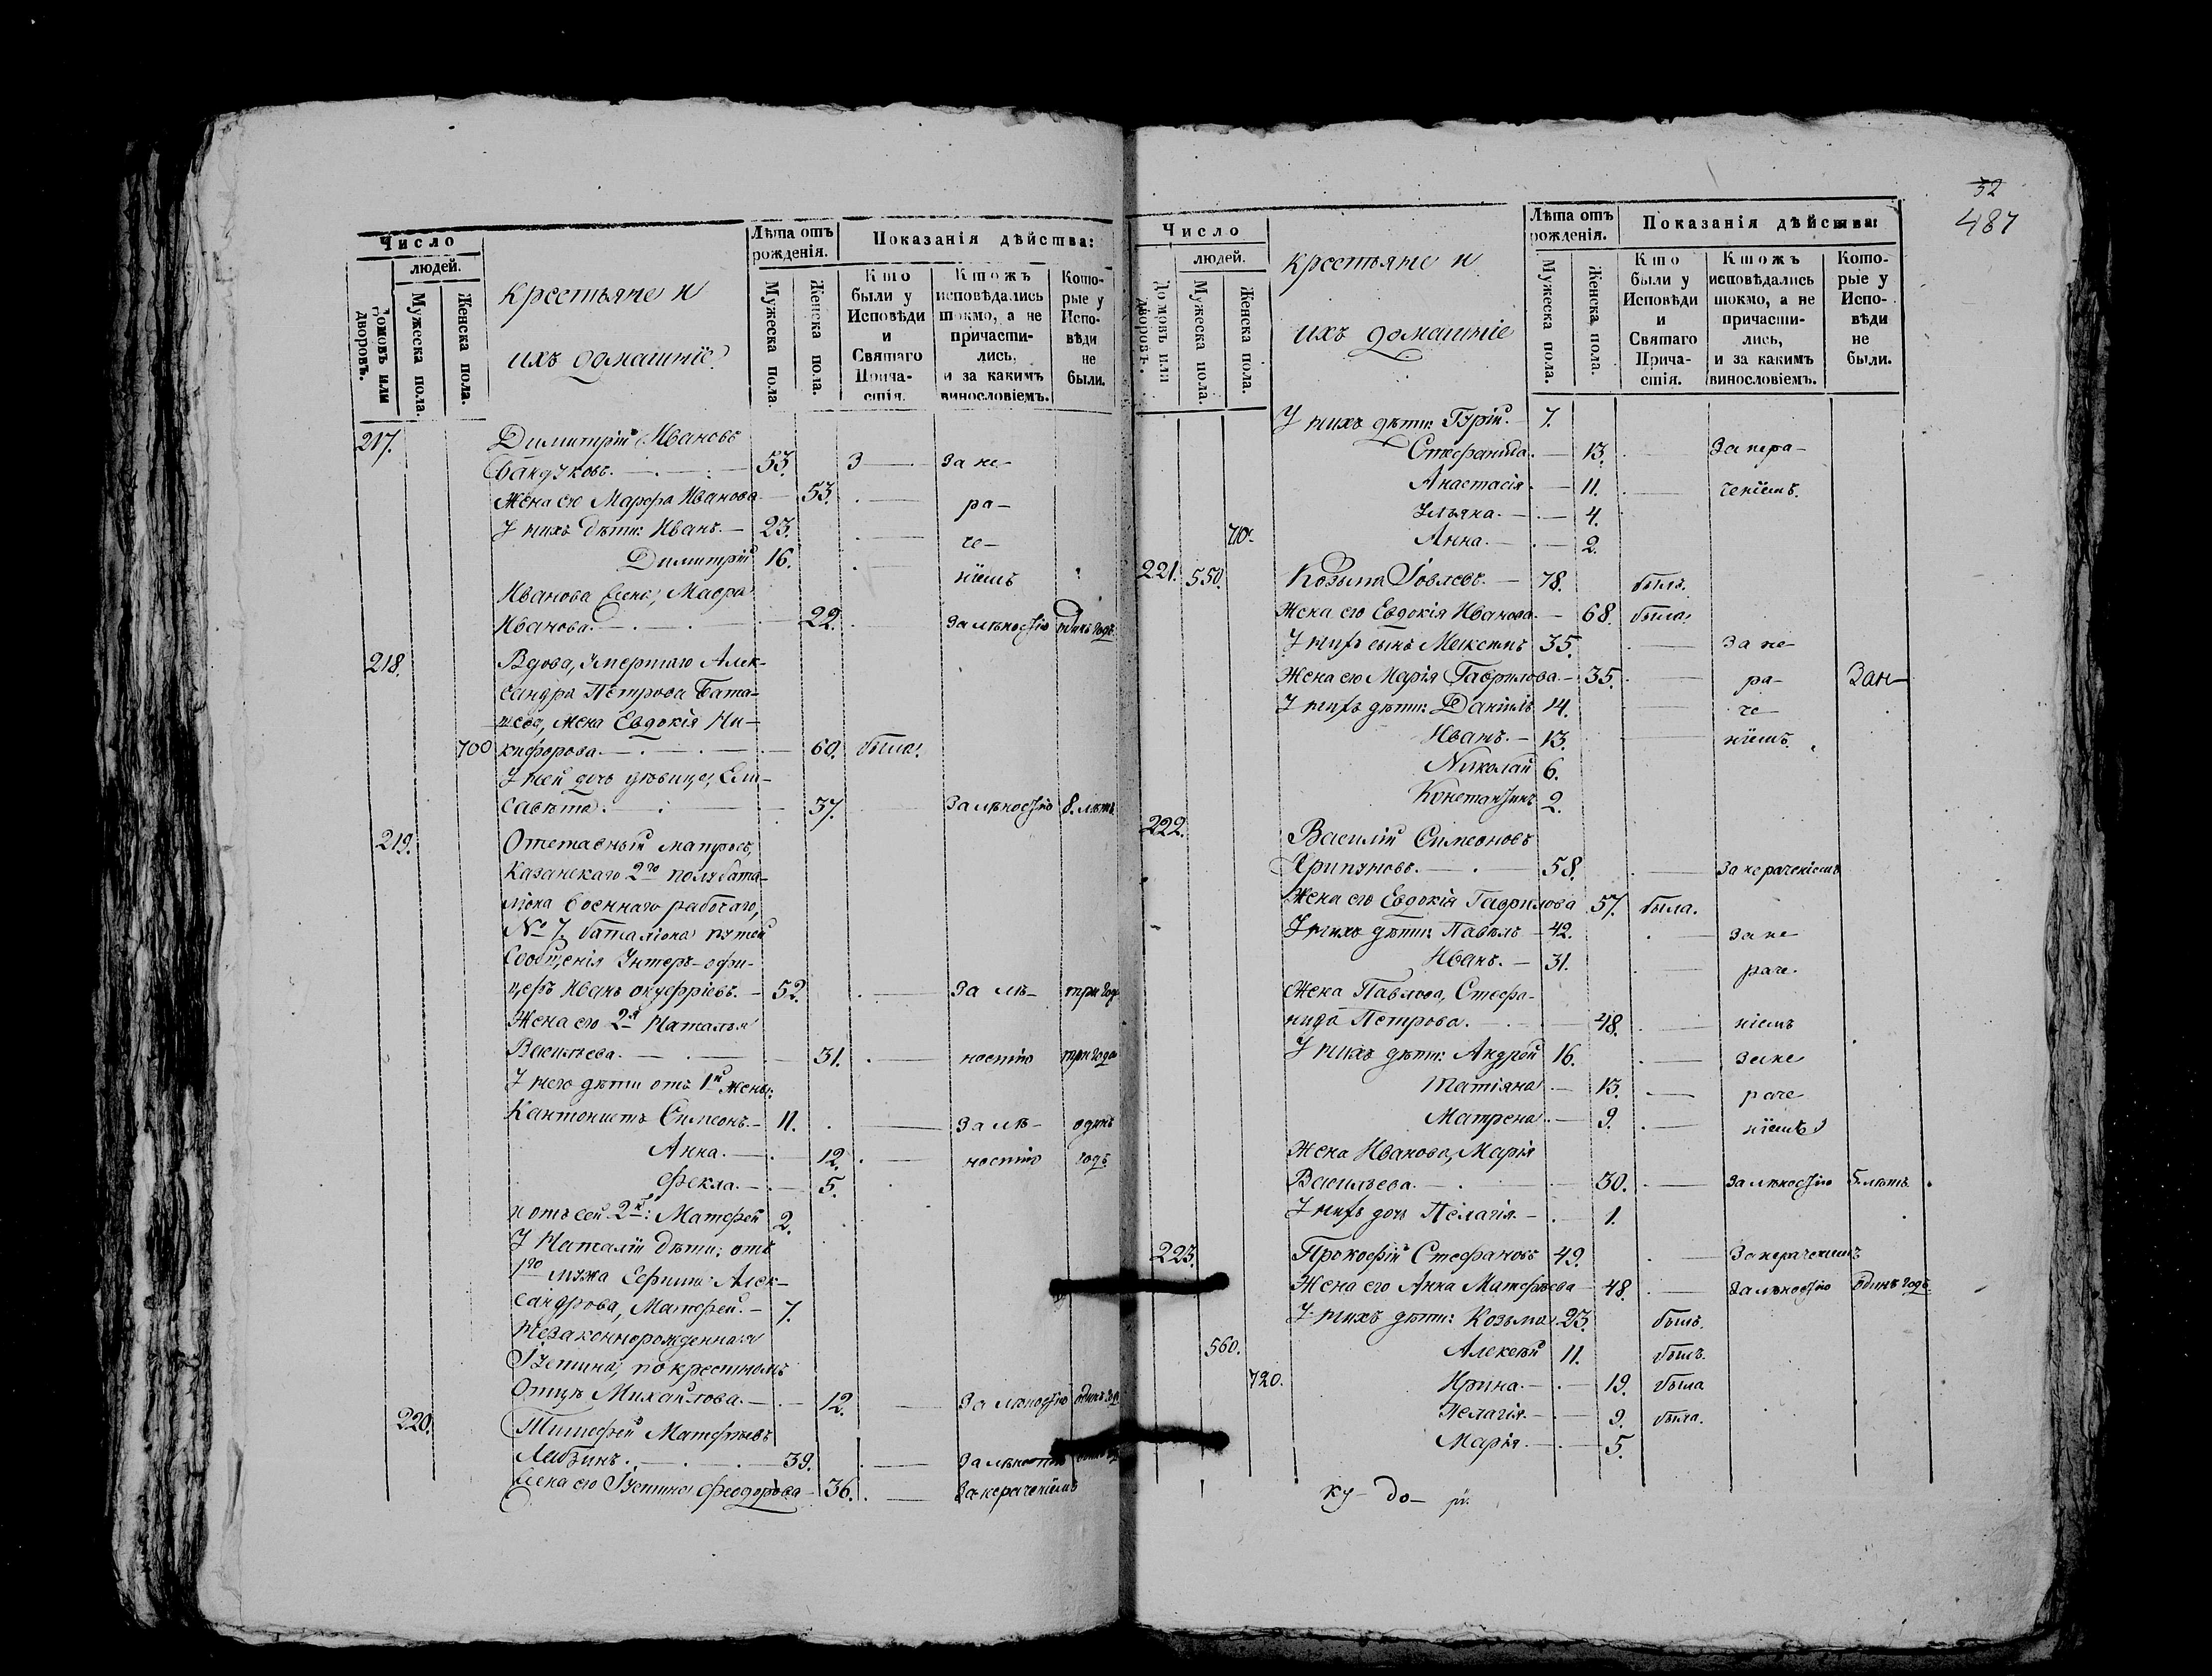 Число
людей.
Домовъ или дворовъ.
Мужеска пола.
Женска пола.
крестьяне и
ихъ домашніе
Лѣта отъ рожденія.
Мужеска пола.
Женска пола.
Показанія дѣйства:
Кто были у Исповѣди и Святаго Причастія.
Ктожъ исповѣдались токмо, а не причастились, и за какимъ винословіемъ.
Которые у Исповѣди не были.
217. Димитрій Ивановъ
53. З за не-
Жена его Марфа Иванова 53. ра-
У нихъ дѣти: Иванъ. 23. че-
Димитрій 16. ніемъ
Иванова жена, Мавра
Иванова. 22. За лѣностію одинъ годъ
218. Вдова, умершаго Алек-
сандра Петрова Бата-
шева, жена Евдокія Ни-
700 кифорова. 60. была.
У ней дочь дѣвица, Ели-
савета. 37. За лѣностію 8. лѣтъ
219. Отставный матросъ,
Казанскаго 2го полубата-
ліона военнаго рабочаго,
№ 7. баталіона путей
Сообщенія Унтеръ-офи-
церъ Иванъ Онуфріевъ. 52. За лѣ- три года
Жена его 2я Наталья
Васильева. 31. ностію три года
У него дѣти отъ 1й жены:
Кантонистъ Симеонъ. 11. За лѣ- одинъ
Анна. 12. ностію годъ
Фекла. 5.
и отъ сей 2й: Матфей 2.
У Наталіи дѣти: отъ
1го мужа Ефима Алек-
сандрова, Матфей. 7.
Незаконнорожденная
Іустина, по крестномъ
Отцѣ Михайлова. 12. За лѣностію одинъ годъ
220. Тимофей Матфѣевъ
39. За лѣностію
Жена его Іустина Феодорова 36. За нераченіемъ
32
487
Число
людей.
Домовъ или дворовъ.
Мужеска пола.
Женска пола.
крестьяне и
ихъ домашніе
Лѣта отъ рожденія.
Мужеска пола.
Женска пола.
Показанія дѣйства:
Кто были у Исповѣди и Святаго Причастія.
Ктожъ исповѣдались токмо, а не причастились, и за какимъ винословіемъ.
Которые у Исповѣди не были.
У нихъ дѣти: Гурій. 7.
Стефанида. 13. За нера-
Анастасія. 11. ченіемъ.
Ульяна. 4.
710. Анна. 2.
221. 550. Козьма Іовлевъ. 78. былъ.
Жена его Евдокія Иванова. 68. была.
У нихъ сынъ Максимъ 35. За не-
Жена его Марія Гаврилова. 35. ра-
У нихъ дѣти: Даніилъ 14. че
Иванъ. 13. ніемъ.
Николай 6.
Константинъ 2.
222. Василій Симеоновъ
Хрипуновъ. 58. За нераченіемъ
Жена его Евдокія Гаврилова 57. была.
У нихъ дѣти: Павелъ 42. За не
Иванъ. 31. раче.
Жена Павлова, Стефа-
нида Петрова. 48. ніемъ
У нихъ дѣти: Андрей 16. За не
Татіяна 13. раче
Матрена. 9. ніемъ
Жена Иванова, Марія
Васильева. 30. За лѣностію 5. лѣтъ.
У нихъ дочь Пелагія. 1.
223. Прокофій Стефановъ 49. За нераченіемъ
Жена его Анна Матфѣева 48. За лѣностію одинъ годъ.
У нихъ дѣти: Козьма 23. былъ.
560. Алексѣй 11. былъ.
720. Ирина. 19. была
Пелагія. 9. была.
Марія. 5.